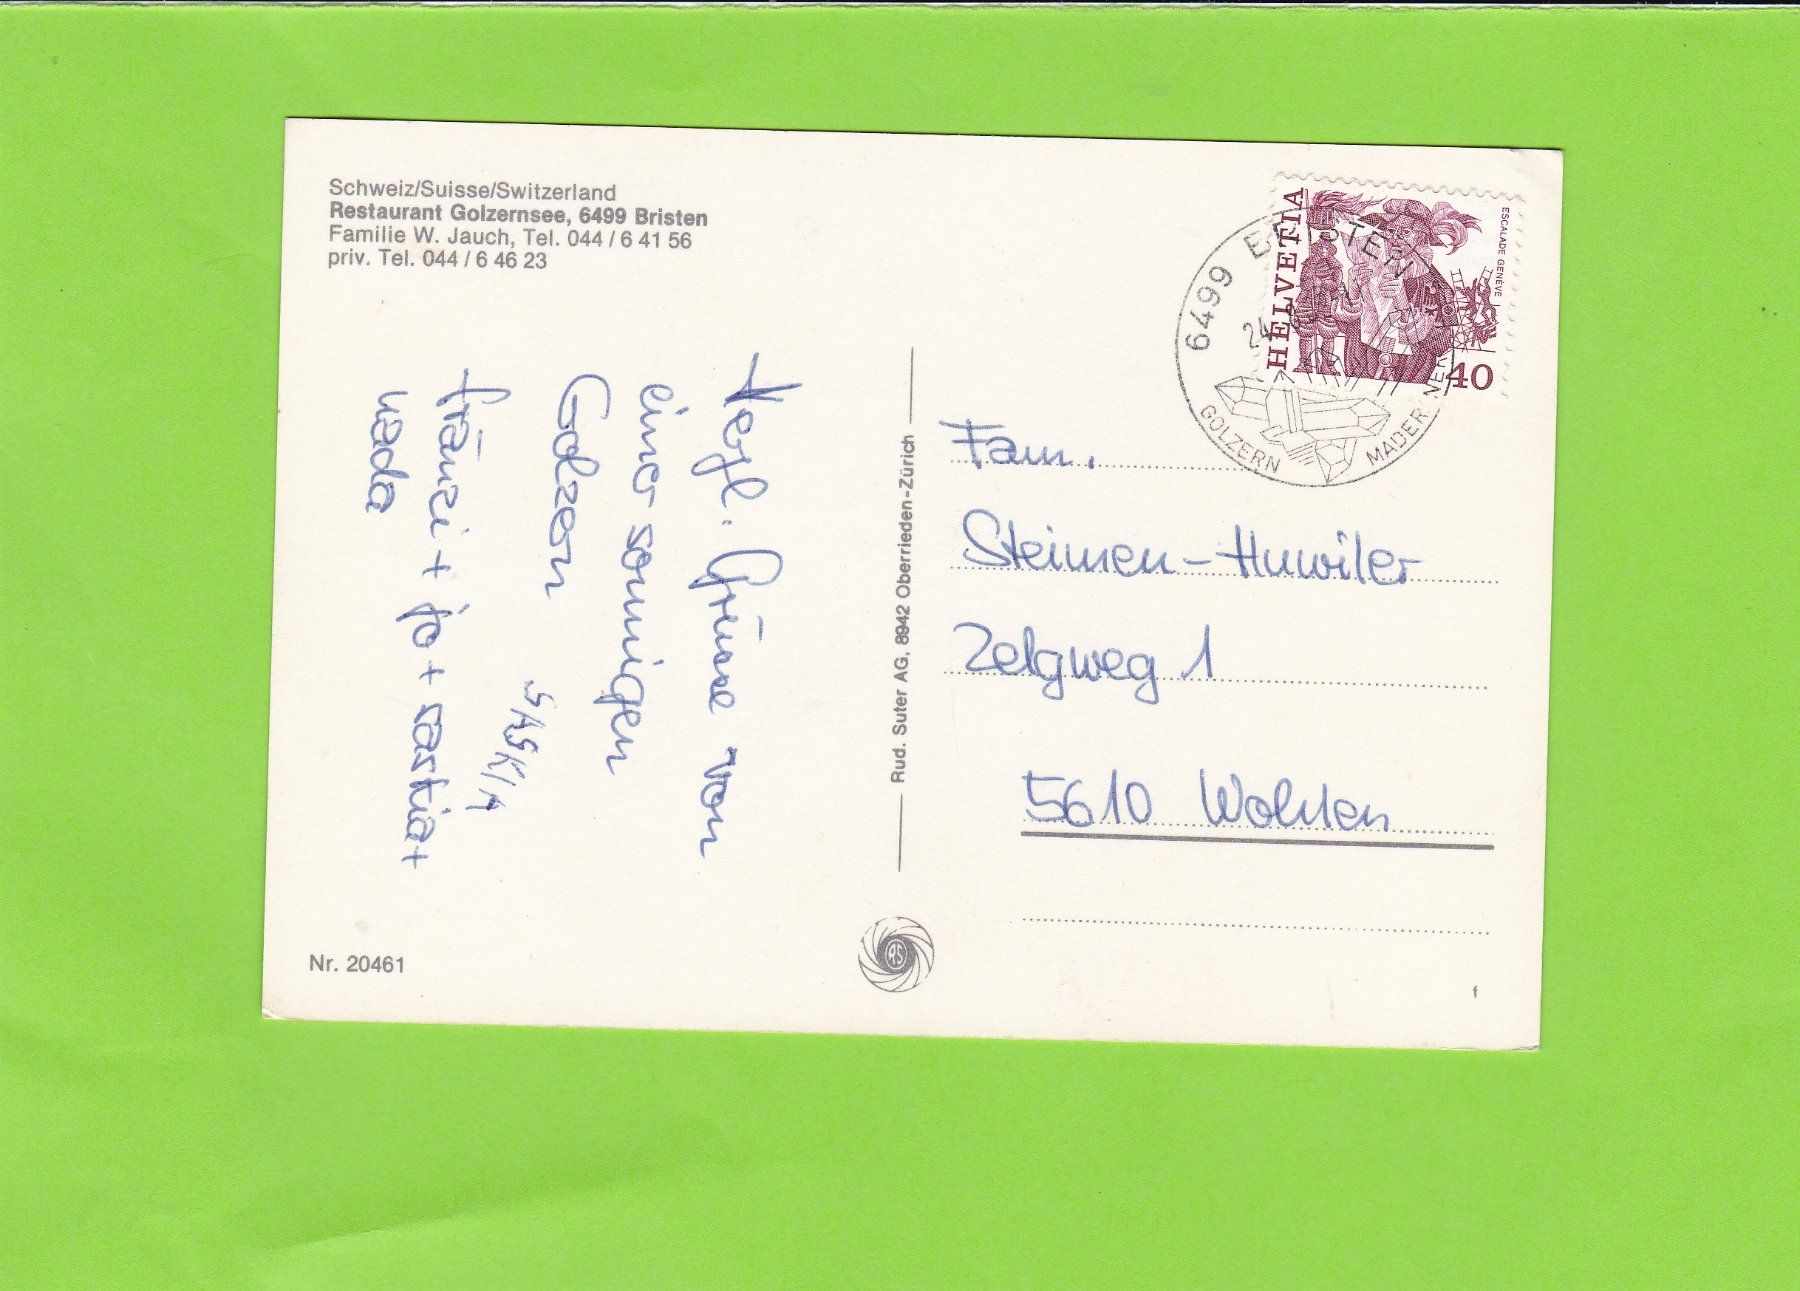 Schweiz/Suisse/Switzerland
Restaurant Golzernsee, 6499 Bristen
Familie W. Jauch, Tel. 044 / 6 41 56
priv. Tel. 044 / 6 46 23
Herzl. Grüsse von
einer sonnigen
Golzern
SASKIA
fränzi + jo +
nada
Nr. 20461
Rud. Suter AG, 8942 Oberrieden-Zürich
RS
HELVETIA
ESCALADE GENÈVE
40
6499 BRISTEN
24
GOLZERN MADER
Fam.
Steimen-Huwiler
Zelgweg 1
5610 Wohlen
f